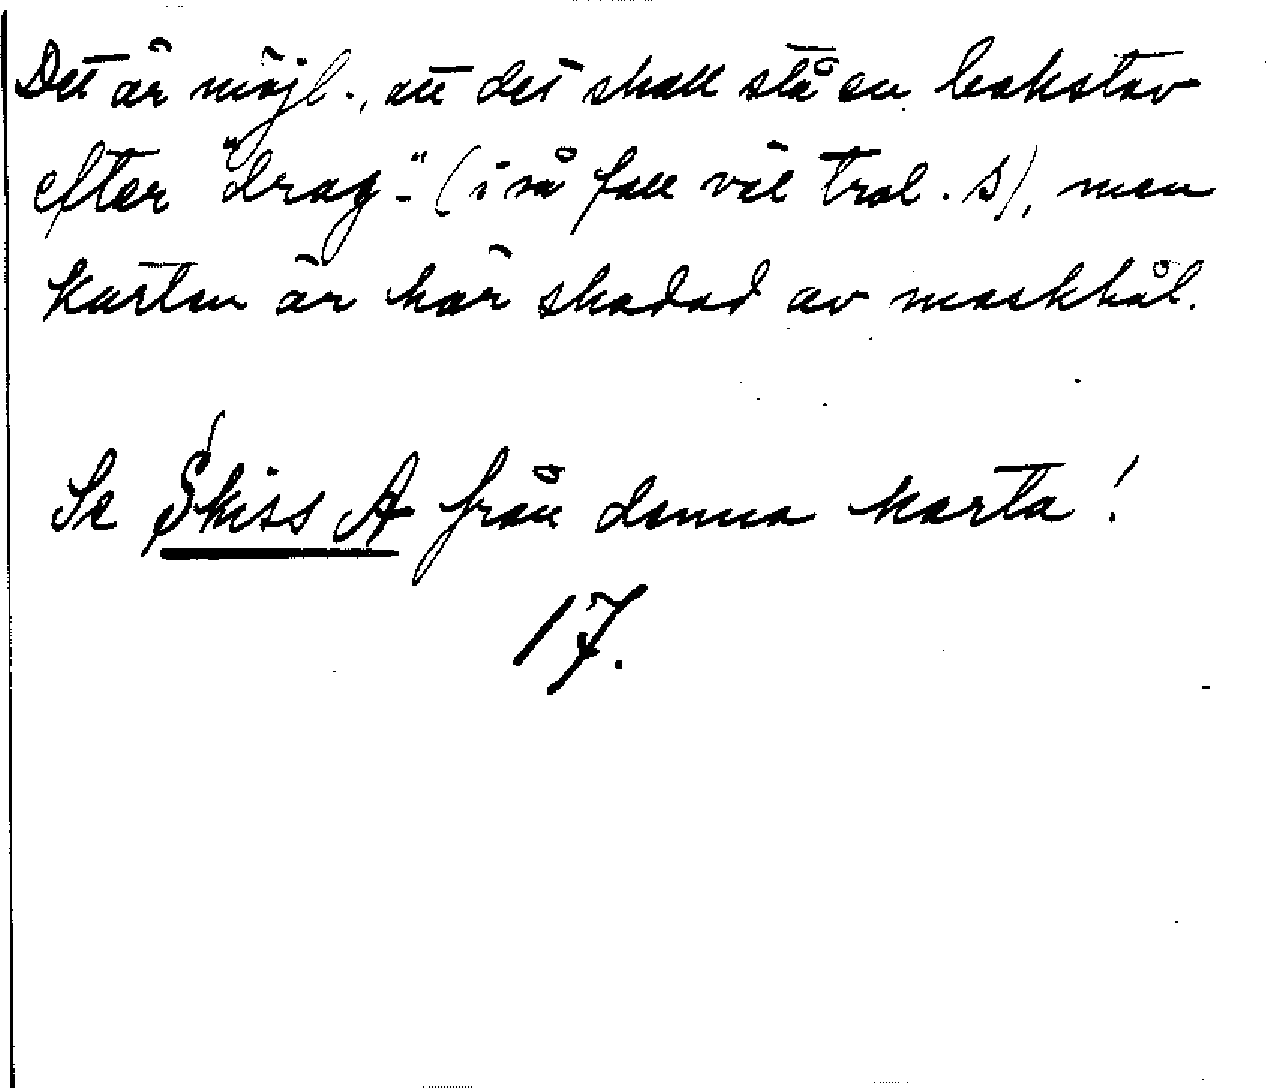 Det är möjl., att det skall stå en bokstav
efter "drag-" (i så fall väl trol. s), men
kartan är här skadad av maskhål.
Se Skiss A från denna karta!
17.